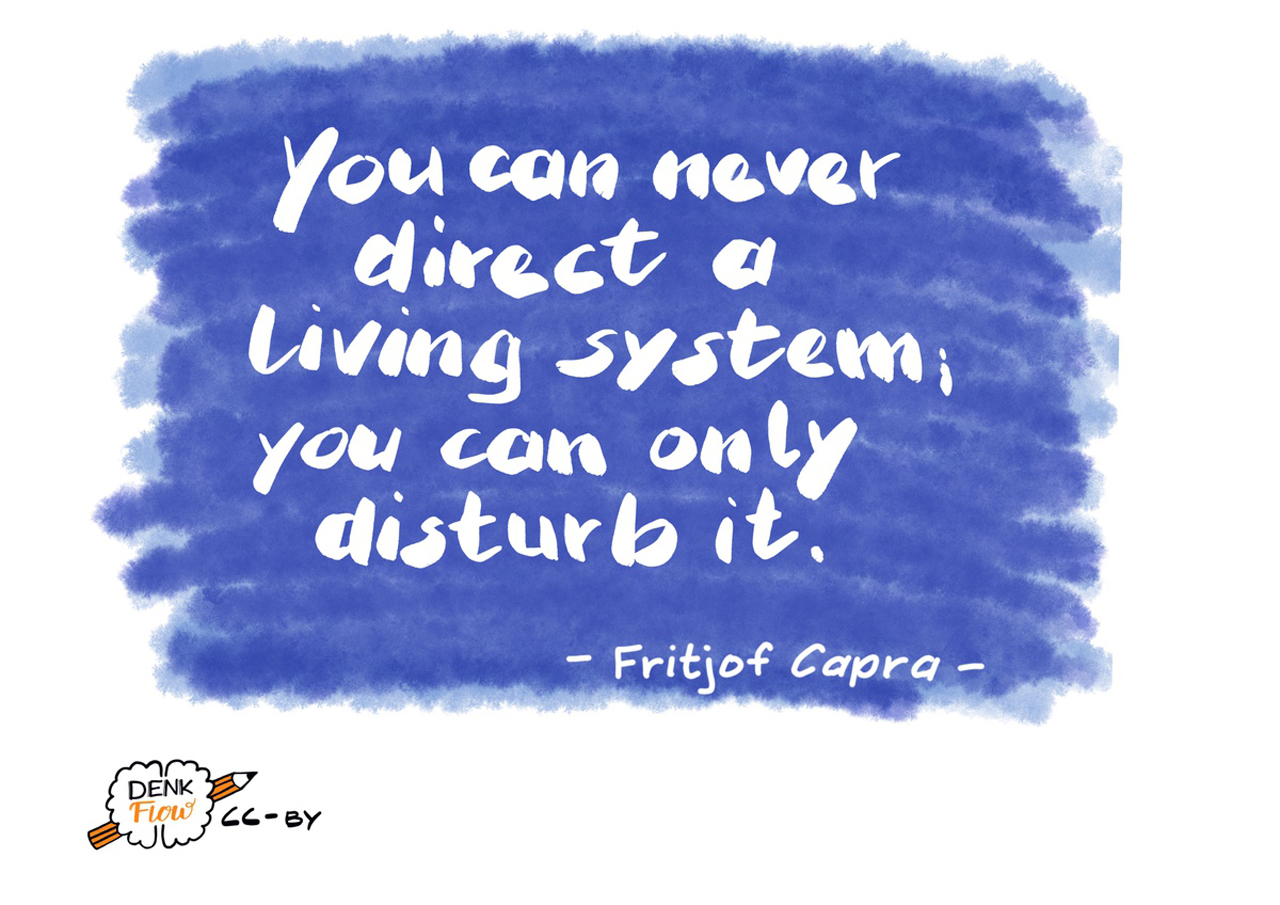 You can never
direct a
Living system;
you can only
disturb it.
- Fritjof Capra -
DENK
Flow
CC-BY